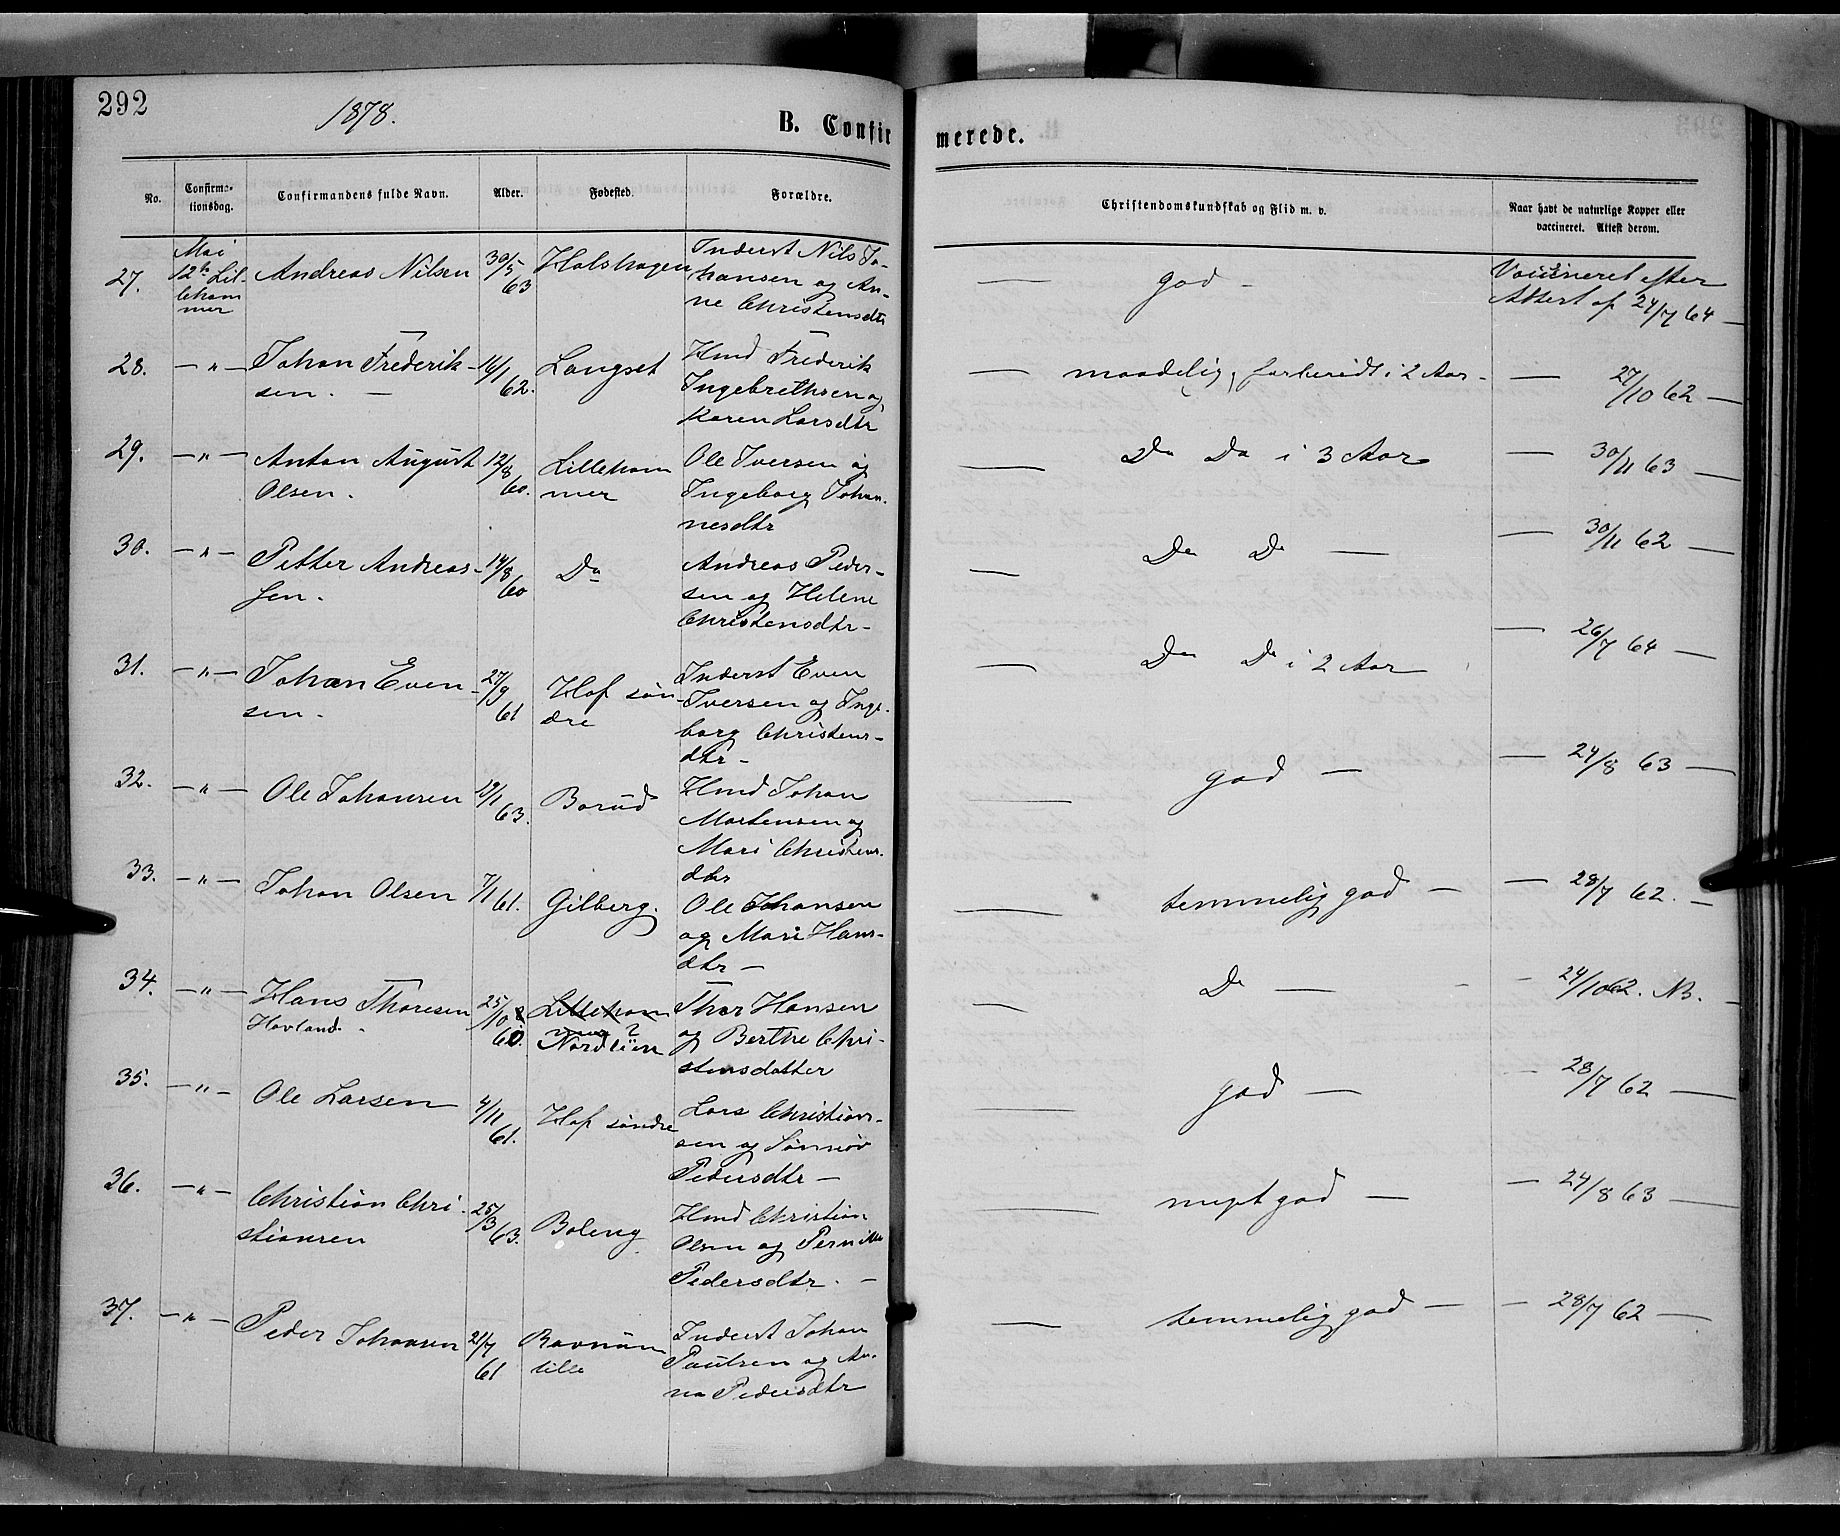 292
1878.
B. Confirmerede.
No. Confirmationsdag. Confirmandens fulde Navn. Alder. Fødested. Forældre. Christendomskundskab og Flid m. v. Naar havt de naturlige Kopper eller vaccineret. Attest derom.
27. Mai 12te Lillehammer Andreas Nilsen 30/5 63 Holshagen Inderst Nils Johansen og Anne Christensdtr — god — Vaccineret efter Attest af 24/7 64 —
28. — " — Johan Frederiksen. — 16/1 62. Langset Hmd Frederik Ingebrethsen og Karen Larsdtr — maadelig, forberedt i 2 Aar — — 27/10 62 —
29. — " — Anton August Olsen. 12/8 60. Lillehammer Ole Iversen og Ingeborg Johannesdtr — Do Do i 3 Aar — 30/11 63 —
30. — " — Petter Andreassen. 14/8 60 Do Andreas Pedersen og Helene Christensdtr — — Do Do — — 30/11 62 —
31. — " — Johan Evensen. 27/9 61 Hof søndre Inderst Even Iversen og Ingeborg Christensdtr — — Do Do i 2 Aar — 26/7 64 —
32. — " — Ole Johansen 29/1 63. Borud Hmd Johan Mortensen og Mari Christensdtr — god — — 24/8 63 —
33. — " — Johan Olsen 7/1 61. Gilberg. Ole Johansen og Mari Hansdtr — — temmelig god — — 28/7 62. —
34. — " — Hans Thoresen Hovland. 25/10 60. Lillehammer? Nordlien Thor Hansen og Berthe Christensdatter — Do — - 24/10 62. NB. —
35. — " — Ole Larsen 4/11 61. Hof søndre Lars Christiansen og Sønnøv Pedersdtr — — god — — 28/7 62 —
36. — " — Christian Christiansen 25/3 63. Boleng Hmd Christian Olsen og Pernille Pedersdtr. — — meget god — — 24/8 63 —
37. — " — Peder Johansen 21/7 61 Ravnum lille Inderst Johan Paulsen og Anna Pedersdtr — temmelig god — — 28/7 62 —